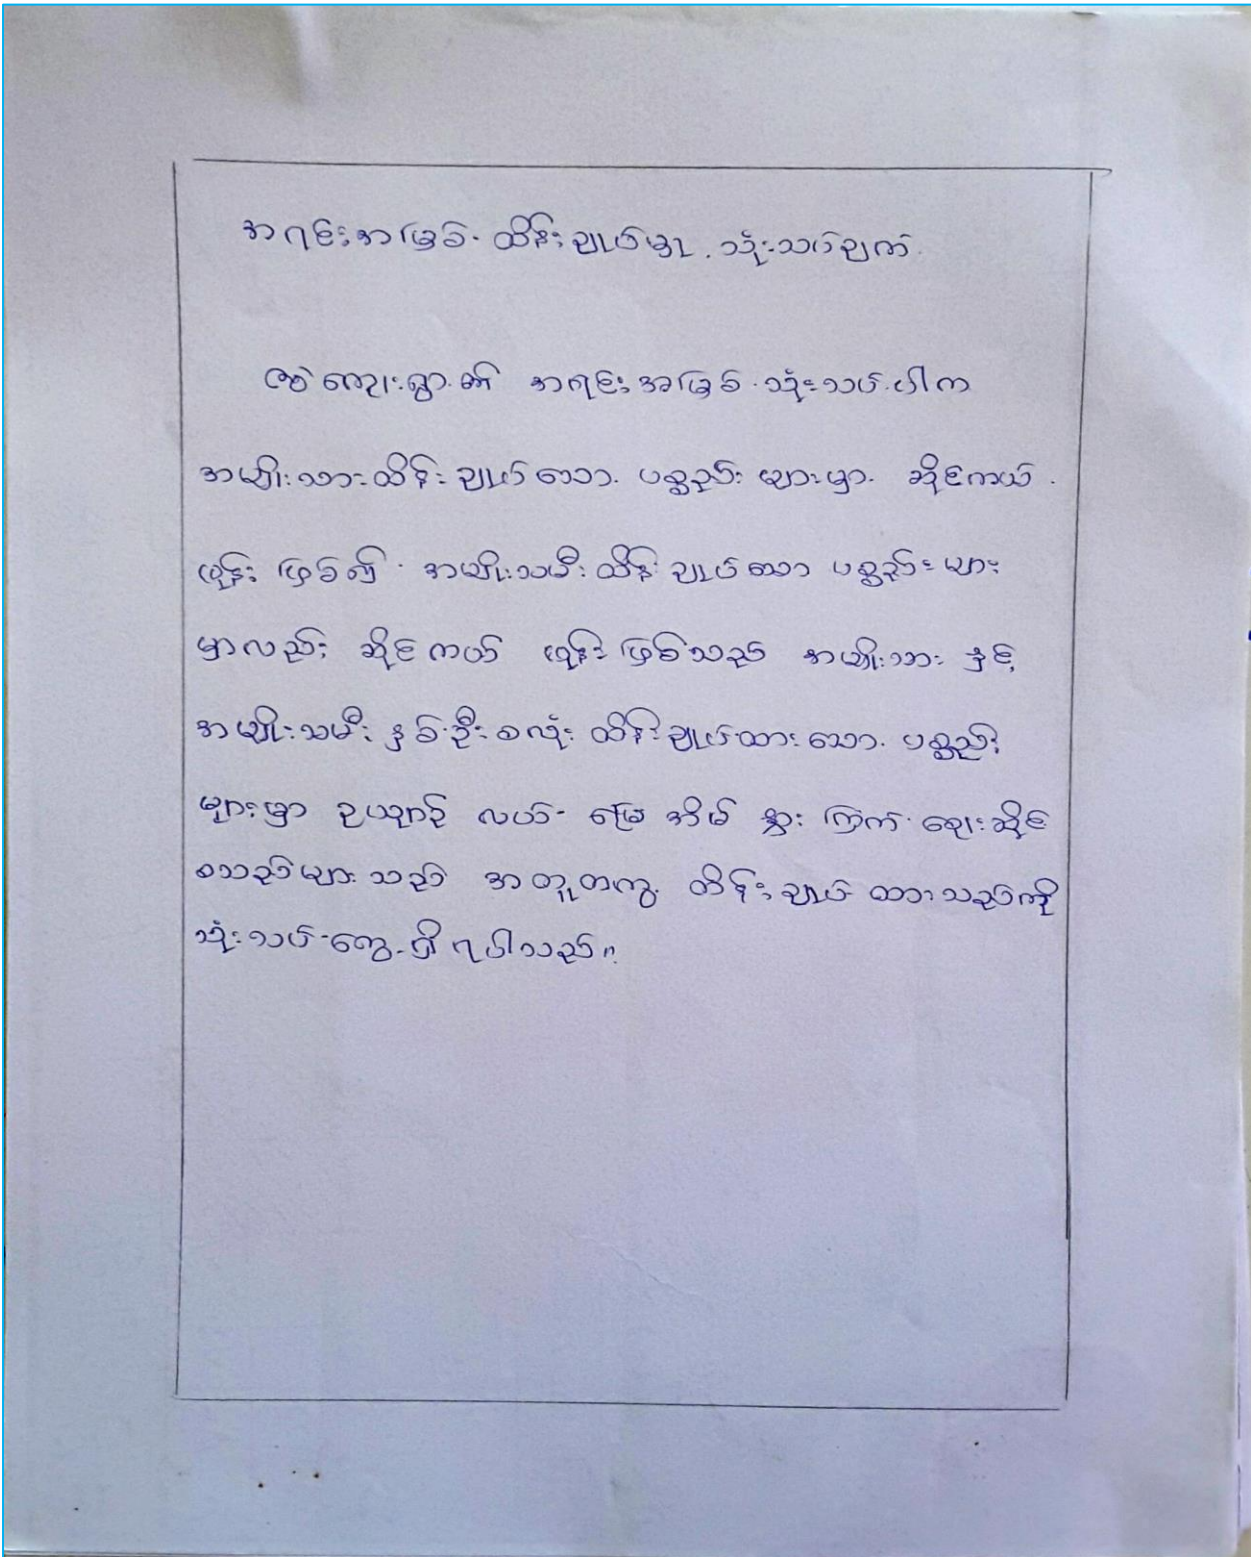 အရင်းအမြစ် ထိန်းချုပ်မှု သုံးသပ်ချက်
ကျေးရွာ၏ အရင်းအမြစ် သုံးသပ်ပါက
အမျိုးသားထိန်းချုပ်သော ပစ္စည်းများမှာ ဆိုင်ကယ်
ဖုန်း ဖြစ်၍ အမျိုးသမီးထိန်းချုပ်သော ပစ္စည်းများ
မှာလည်း ဆိုင်ကယ် ဖုန်း ဖြစ်သည် အမျိုးသား နှင့်
အမျိုးသမီး နှစ်ဦးစလုံး ထိန်းချုပ်ထားသော ပစ္စည်း
များမှာ ဥယျာဉ် လယ် မြေ အိမ် နွား ကြက် ဈေးဆိုင်
စသည်များသည် အတူတကွ ထိန်းချုပ် ထားသည်ကို
သုံးသပ်တွေ့ရှိရပါသည်။